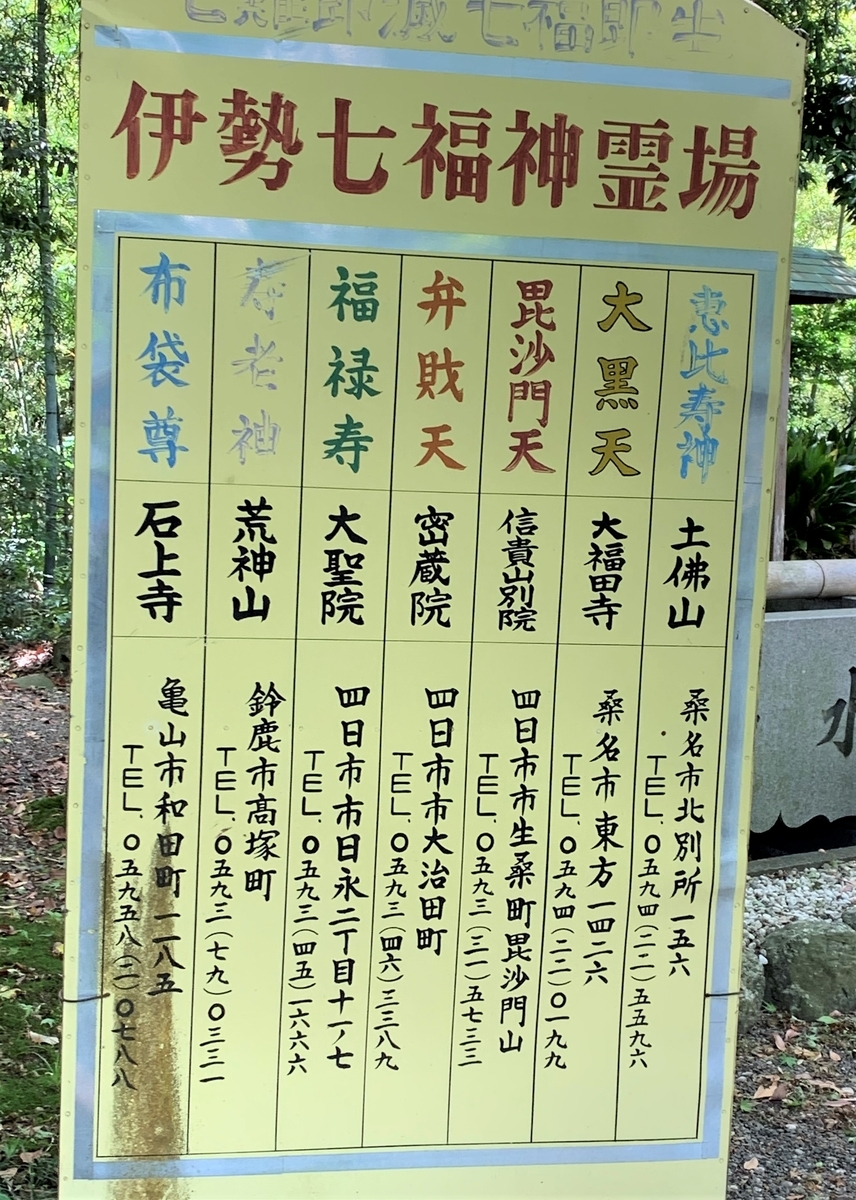 七難即滅七福即生
伊勢七福神霊場
恵比寿神
土佛山
桑名市北別所一五六
TEL.〇五九四(二二)五五九六
大黒天
大福田寺
桑名市東方一四二六
TEL.〇五九四(二二)〇一九九
毘沙門天
信貴山別院
四日市市生桑町毘沙門山
TEL.〇五九三(三一)五七三三
弁財天
密蔵院
四日市市大治田町
TEL.〇五九三(四六)三三八九
福禄寿
大聖院
四日市市日永二丁目十一ノ七
TEL.〇五九三(四五)一六六六
寿老神
荒神山
鈴鹿市高塚町
TEL.〇五九三(七九)〇三三一
布袋尊
石上寺
亀山市和田町一一八五
TEL.〇五九五八(二)〇七八八
水